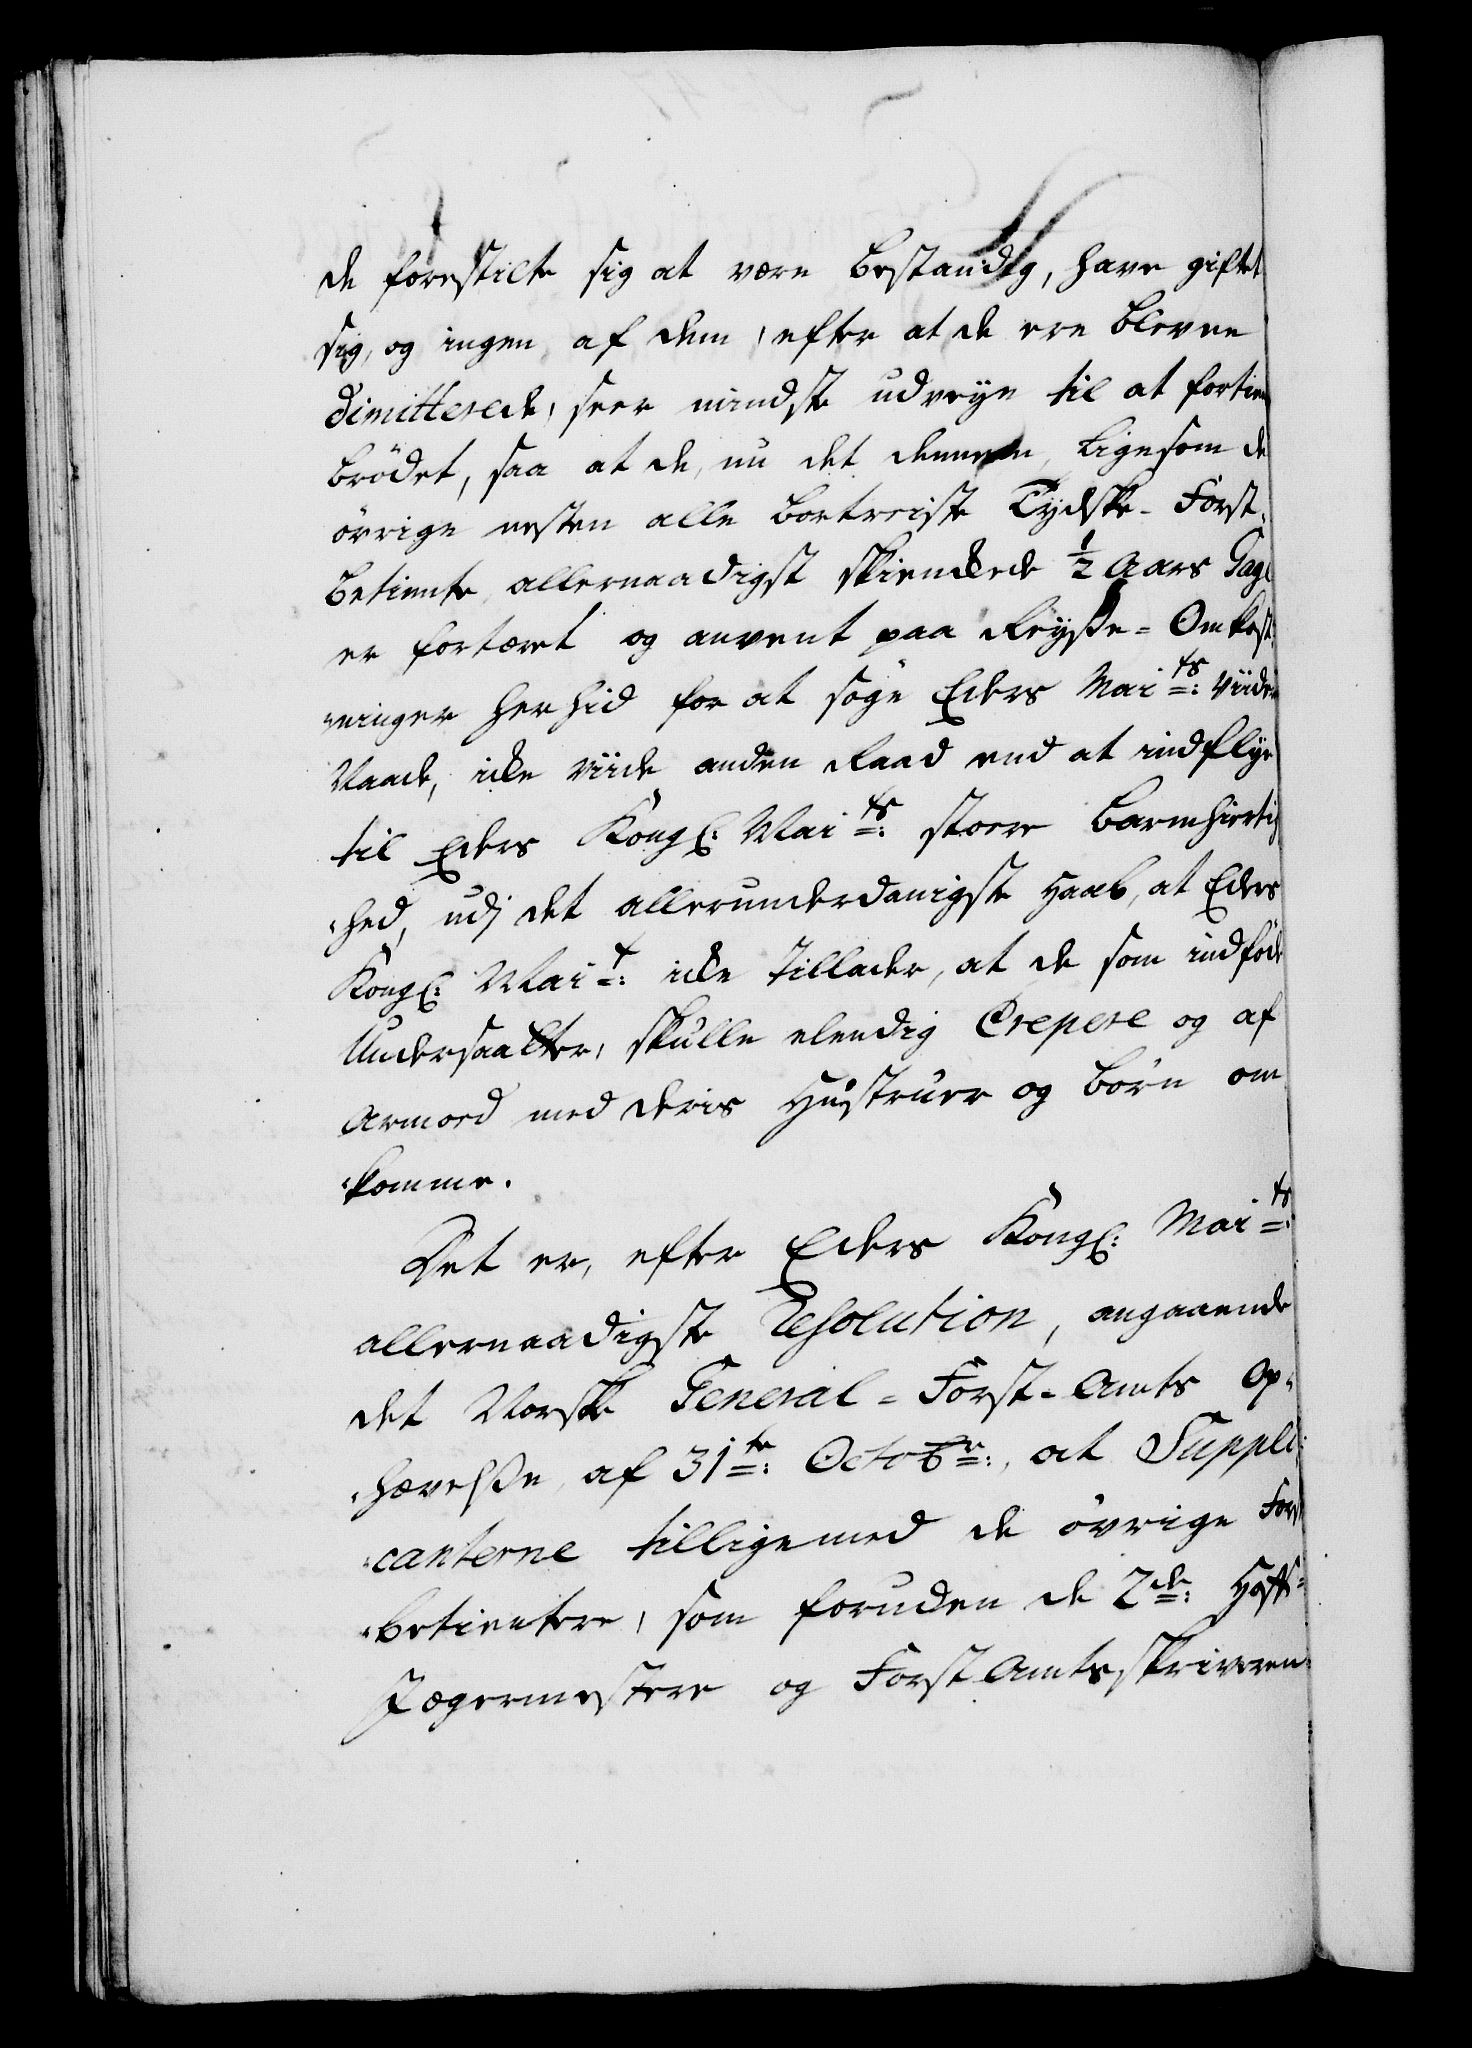 de forestilte sig at være bestandig, have giftet
sig, og ingen af dem, efter at de ere blevne
dimitterede, seer mindste udveye til at fortiene
brödet, saa at de, nu det dennem, ligesom de
övrige nesten alle bortreiste Tydske-Forst-
betiente, allernaadigst skienckede ½ Aars Gage
er fortæret og anvent paa Reyse-Omkost-
ninger her hid for at söge Eders Mai:ts: Viidere
Naade, icke viide anden Raad end at indflye
til Eders Kongl: Mai:ts: store Barmhiertig-
hed, udj det allerunderdanigste Haab, at Eders
Kongl: Mai:t: icke tillader, at de som indföde
Undersaatter, skulle elendig Crepere og af
Armoed med deris Hustruer og Börn om-
komme.
Det er, efter Eders Kongl: Mai:ts:
allernaadigste Resolution, angaaende
det Norske General-Forst-Amts Op-
hævelse, af 31te: Octobr:, at Suppli-
canterne tilligemed de övrige Forst-
betientere, som foruden de 2de: Hoff-
Jægermestere og Forst Amtsskriveren